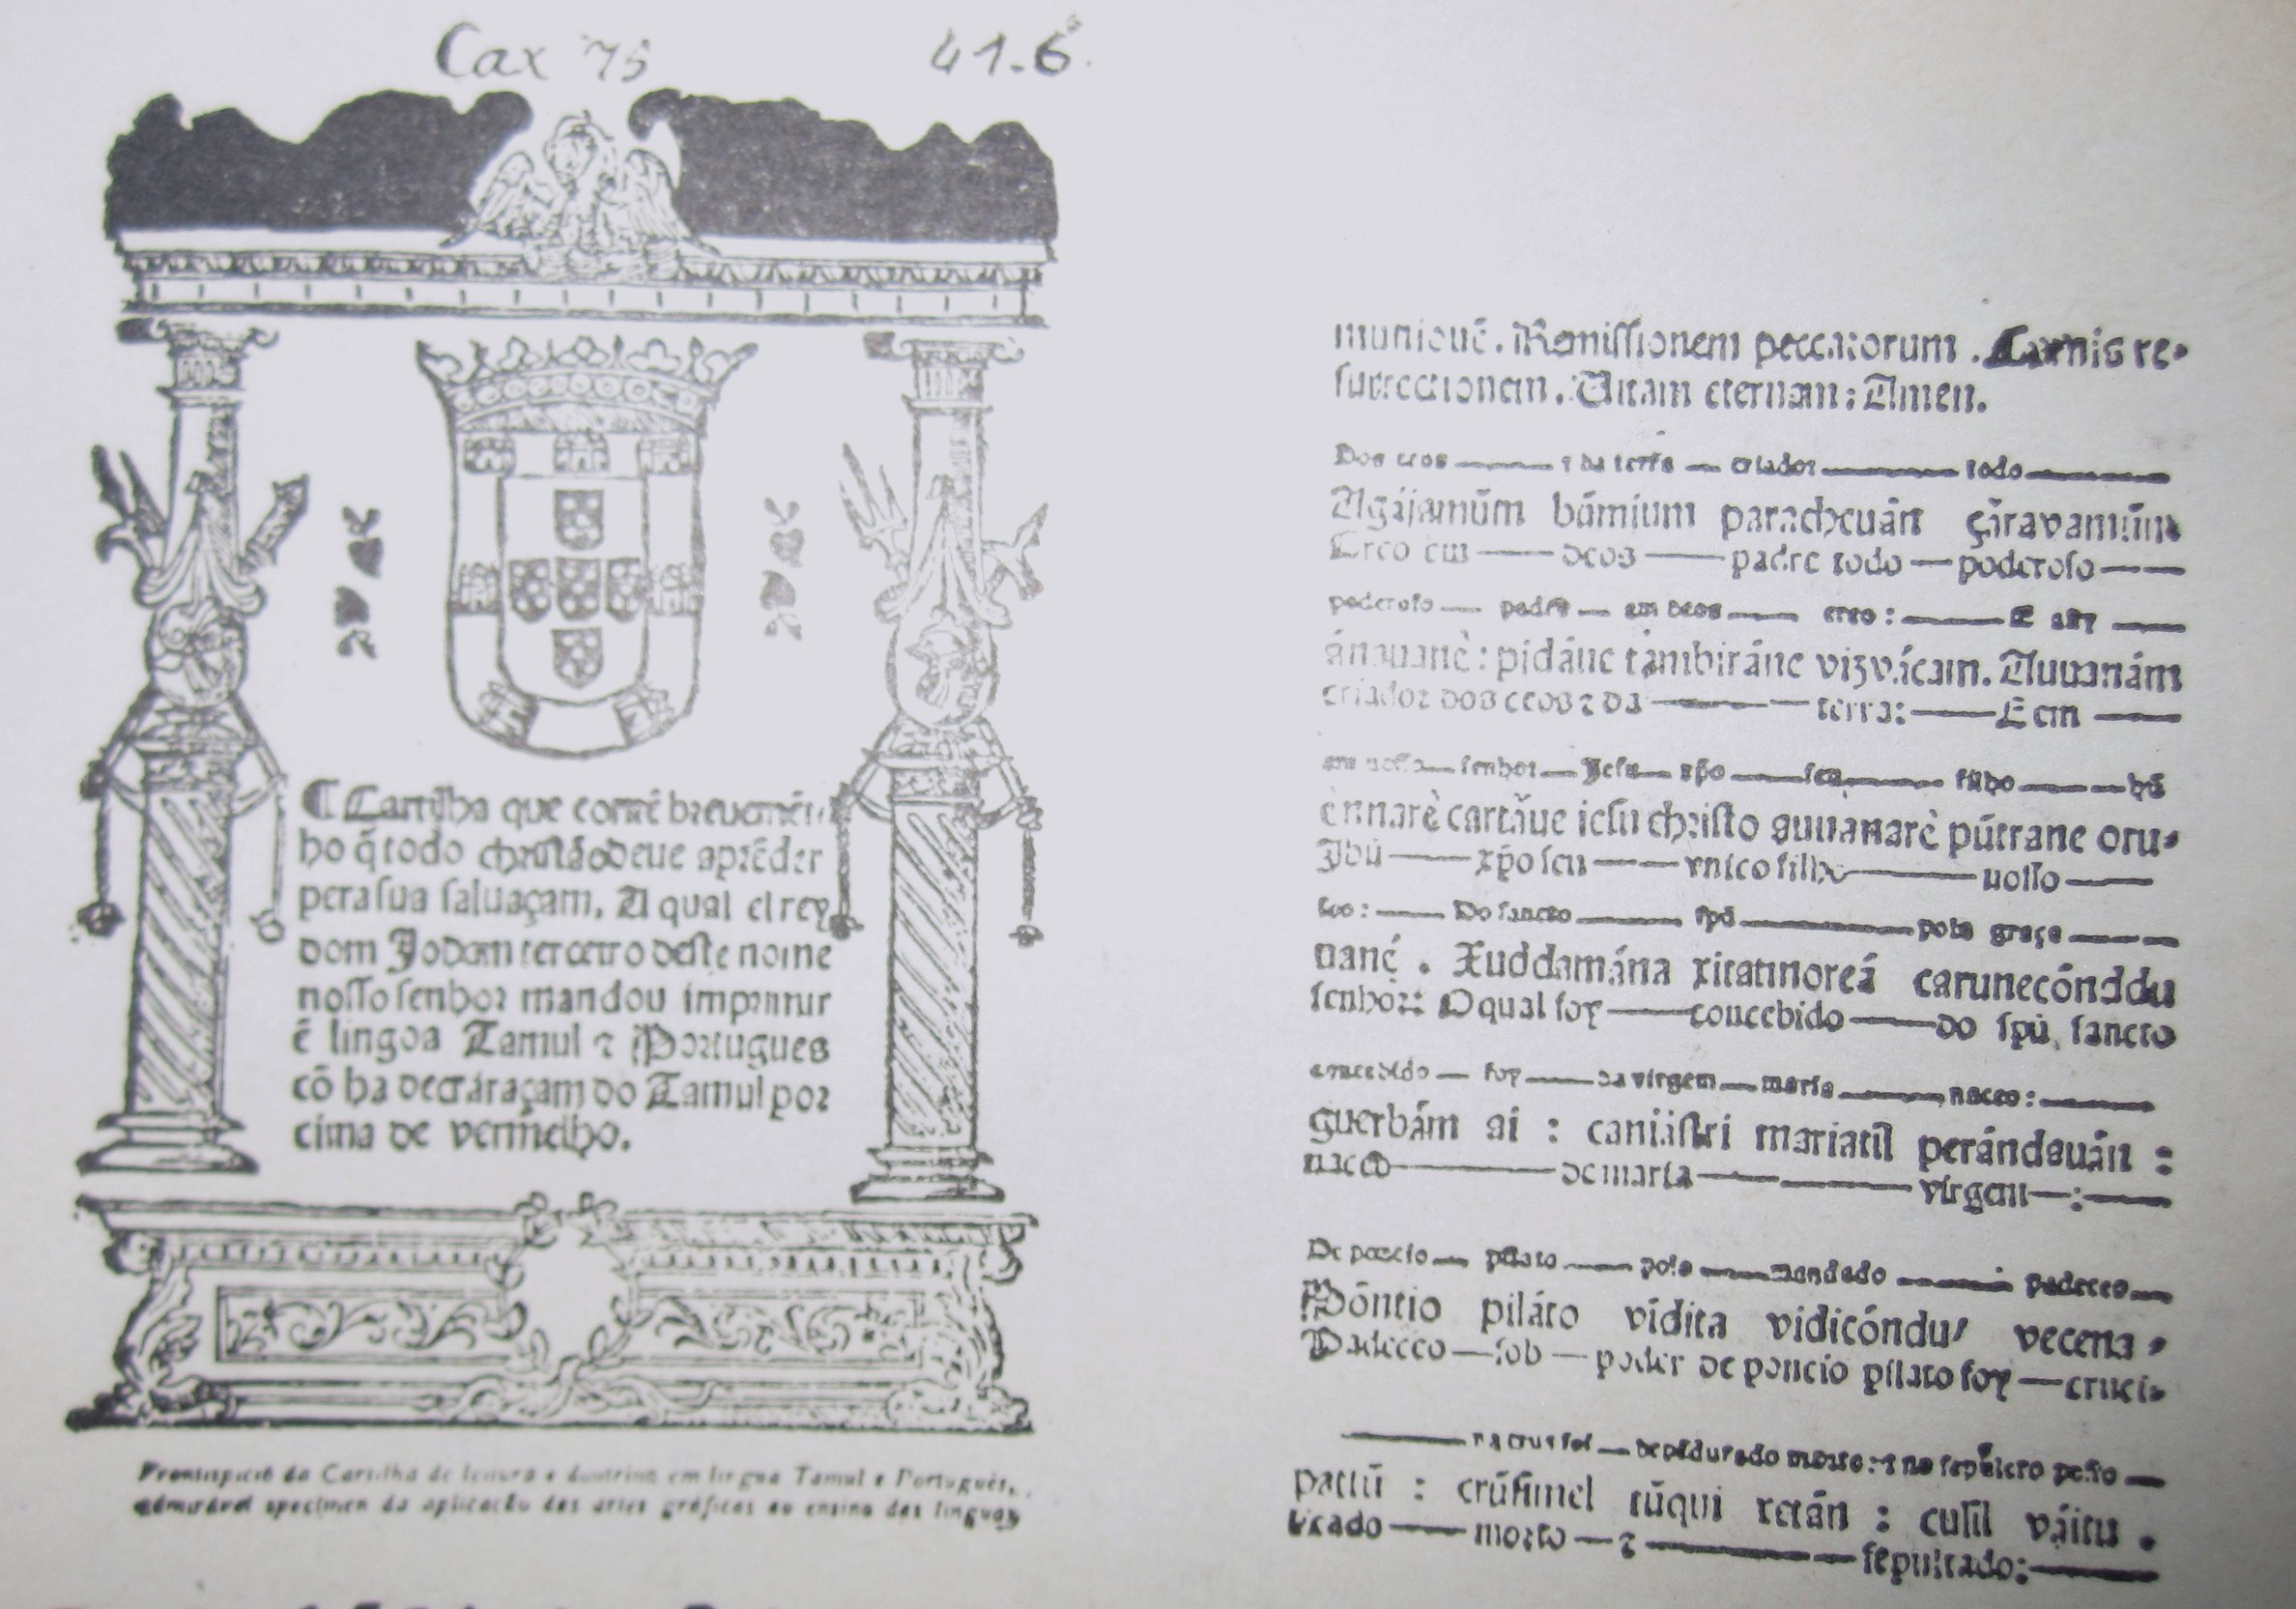 Cax 75 41-6ª
¶ Cartilha que contē breuemēte
ho q̃ todo christão deue aprēder
pera sua saluaçam. A qual el rey
dom Joham terceiro deste nome
nosso senhor mandou imprimir
ē lingoa Tamul ⁊ Portugues
cõ ha decraraçam do Tamul por
cima de vermelho.
Frontispício da Cartilha de leitura e doutrina em lingua Tamul e Português,
admirável specimen da aplicação das artes gráficas ao ensino das linguas
munionē. Remissionem peccatorum. Carnis re-
surrectionem. Vitam eternam: Amen.
Dos ceos — ⁊ da terra — criador — todo —
Agájamũm búmium parachcuán çáravamũm
Creo em — deos — padre todo — poderoso —
poderoso — padre — em deos — creo: — E assy —
ánauanè: pidáue támbiráne vizvácam. Auuanám
criador dos ceos ⁊ da — terra: — E em —
em nosso — senhor — Jesu — xp̃o — seu — filho — hũ
ènnarè cartáue iesu christo auuanarè pútrane oru-
Jhũ — xp̃o seu — vnico filho — nosso —
soo: — Do sancto — spũ — pola graça —
nané. Xuddamána xitatinoreá carunecónddu
senhor: O qual foy — concebido — do spũ, sancto
concebido — foy — da virgem — maria — naceo: —
guerbám ai : caniástri mariatil perándauán :
naceo — de maria — virgem — : —
De poncio — pilato — polo — mandado — padeceo —
Póntio piláto vídita vidicóndu/ vecena-
Padeceo — sob — poder de poncio pilato foy — cruci-
— na crus foi — depẽdurado morto: ⁊ no sepulcro posto —
pattú : crúsimel túqui retán : cusil váitu .
ficado — morto — ⁊ — sepultado: —